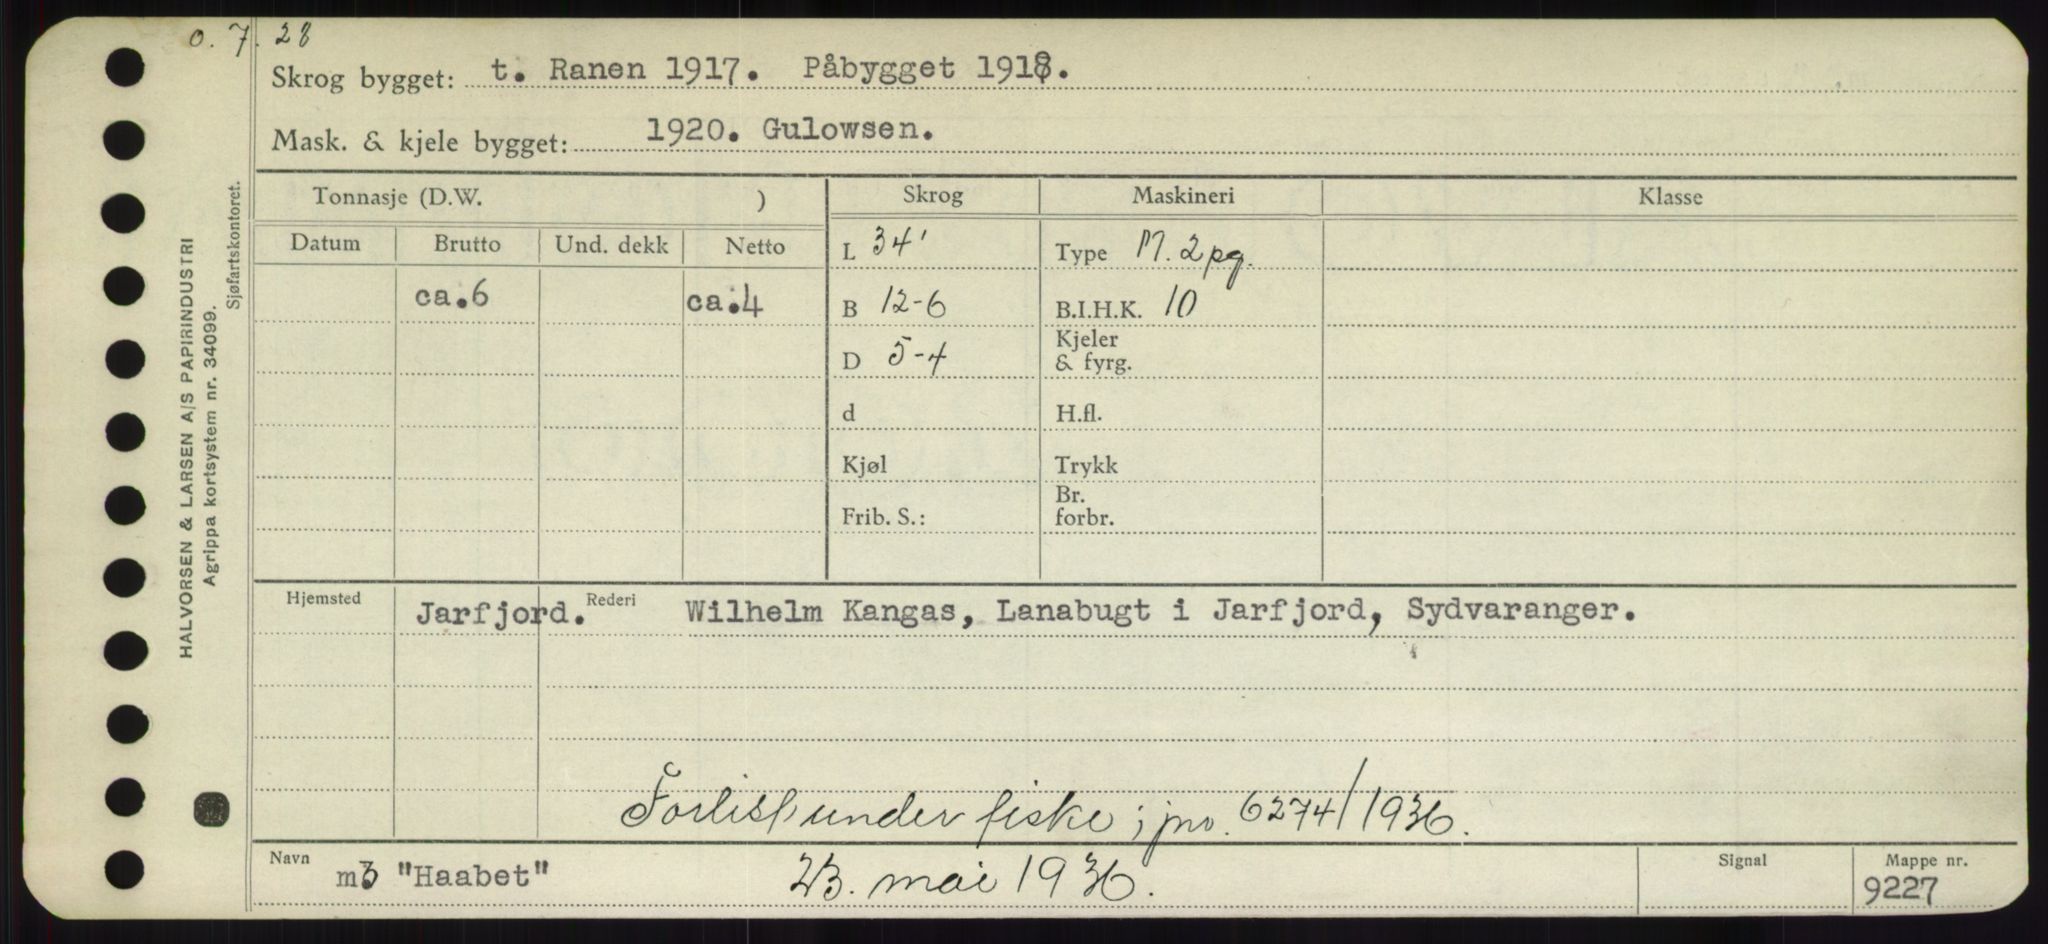 o. 7. 28
Skrog bygget: t. Ranen 1917. Påbygget 1918.
Mask. & kjele bygget: 1920. Gulowsen.
Tonnasje (D.W. ) Skrog Maskineri Klasse
Datum Brutto Und. dekk Netto L 34' Type M. 2 pg.
ca.6 ca.4 B 12-6 B.I.H.K. 10
D 5-4 Kjeler & fyrg.
d H.fl.
Kjøl Trykk
Frib. S.: Br. forbr.
Hjemsted Jarfjord. Rederi Wilhelm Kangas, Lanabugt i Jarfjord, Sydvaranger.
Forlist under fiske; jnr. 6274/1936.
Navn "Haabet" 23. mai 1936. Signal Mappe nr. 9227
HALVORSEN & LARSEN A/S PAPIRINDUSTRI
Agrippa kortsystem nr. 34099.
Sjøfartskontoret.